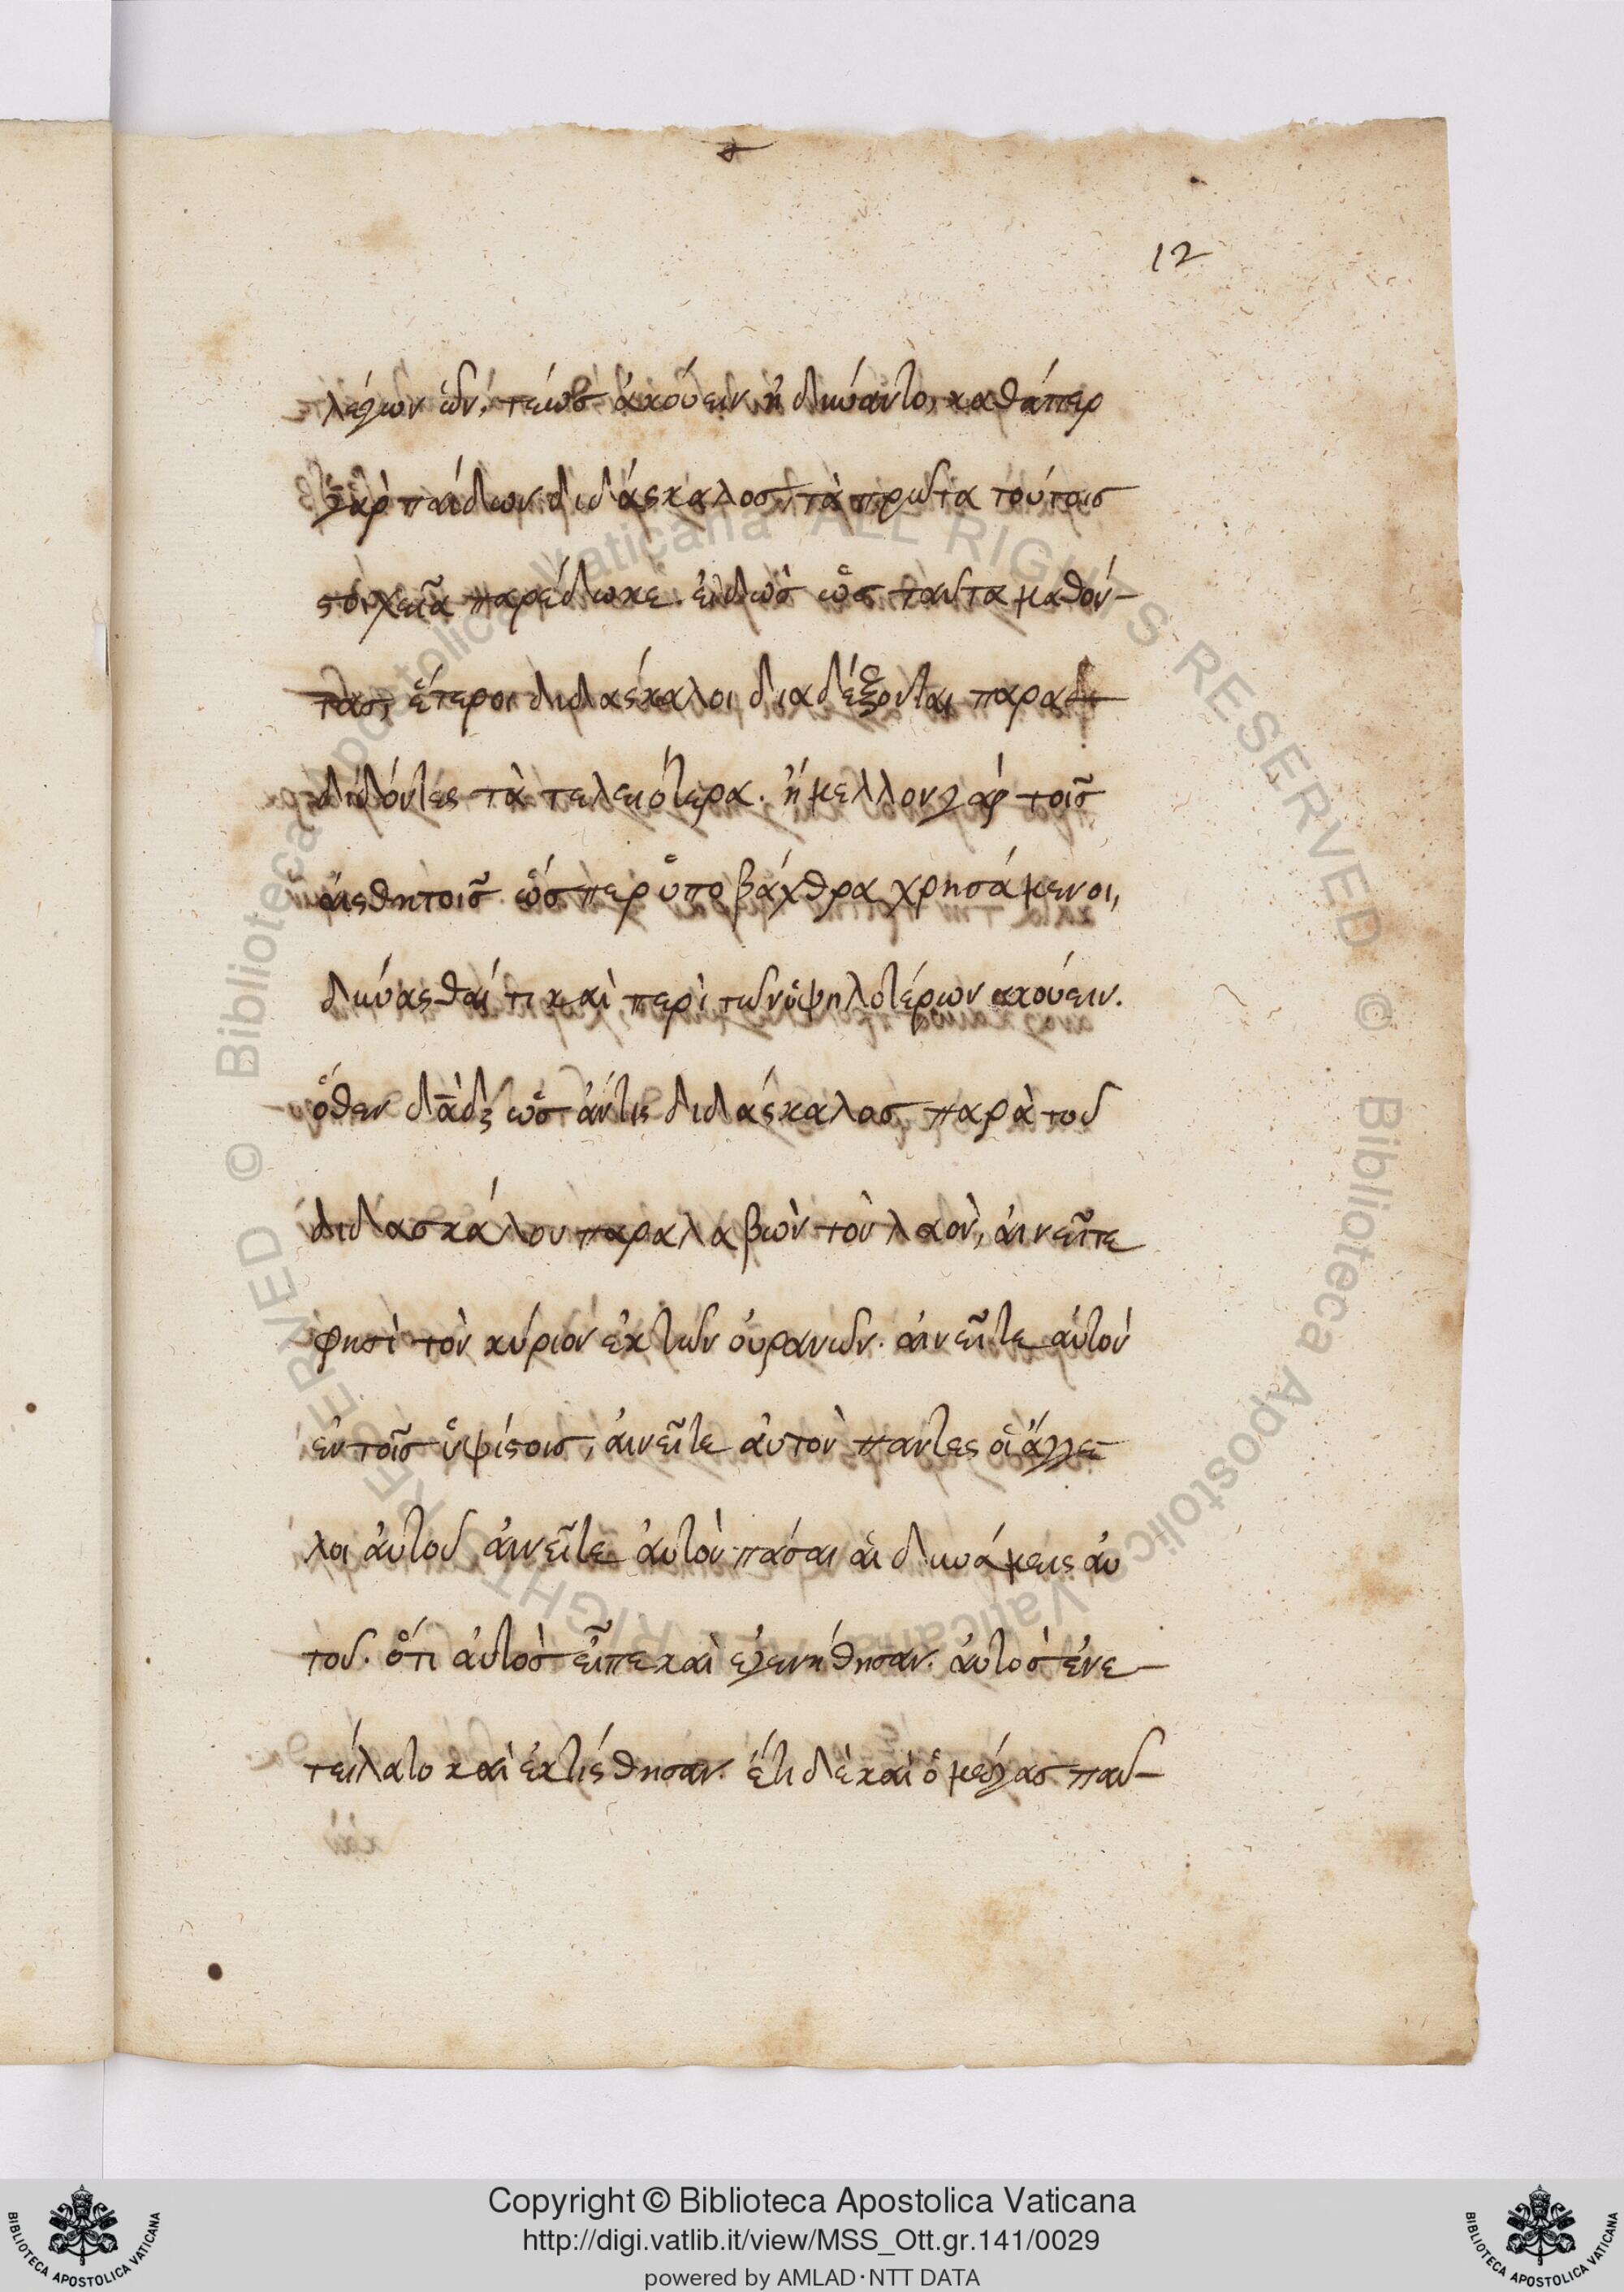 12
λέγων ὧν, τέως ἀκούειν ἠδυναντο, καθάπερ
γὰρ παίδων διδάσκαλος, τὰ πρῶτα τούτοις
στοιχεῖα παρέδωκε. εἰδὼς ὡς ταῦτα μαθόν-
τας, ἕτεροι διδάσκαλοι διαδέξονται παραδι
διδόντες τὰ τελειότερα. ἤμελλον γάρ τοῖς
αἰσθητοῖς ὥσπερ ὑποβάχθρα χρησάμενοι,
δύνασθαί τι καὶ περὶ τῶν ὑψηλοτέρων ἀκούειν.
ὅθεν δᾱδ ὡς ἄν τις διδάσκαλος παρὰ τοῦ
διδασκάλου παραλαβὼν τὸν λαὸν, αἰνεῖτε
φησὶ τὸν κύριον ἐκ τῶν οὐρανῶν. αἰνεῖτε αὐτὸν
ἐν τοῖς ὑψίστοις, αἰνεῖτε αὐτὸν πάντες οἱ ἄγγε-
λοι αὐτοῦ, αἰνεῖτε αὐτὸν πάσαι αἱ δυνάμεις αὐ
τοῦ. ὅτι αὐτὸς εἶπε καὶ ἐγενήθησαν. αὐτὸς ἐνε-
τείλατο καὶ ἐκτίσθησαν. ἔτι δὲ καὶ ὁ μέγας παῦ-
Copyright © Biblioteca Apostolica Vaticana
http://digi.vatlib.it/view/MSS_Ott.gr.141/0029
powered by AMLAD·NTT DATA